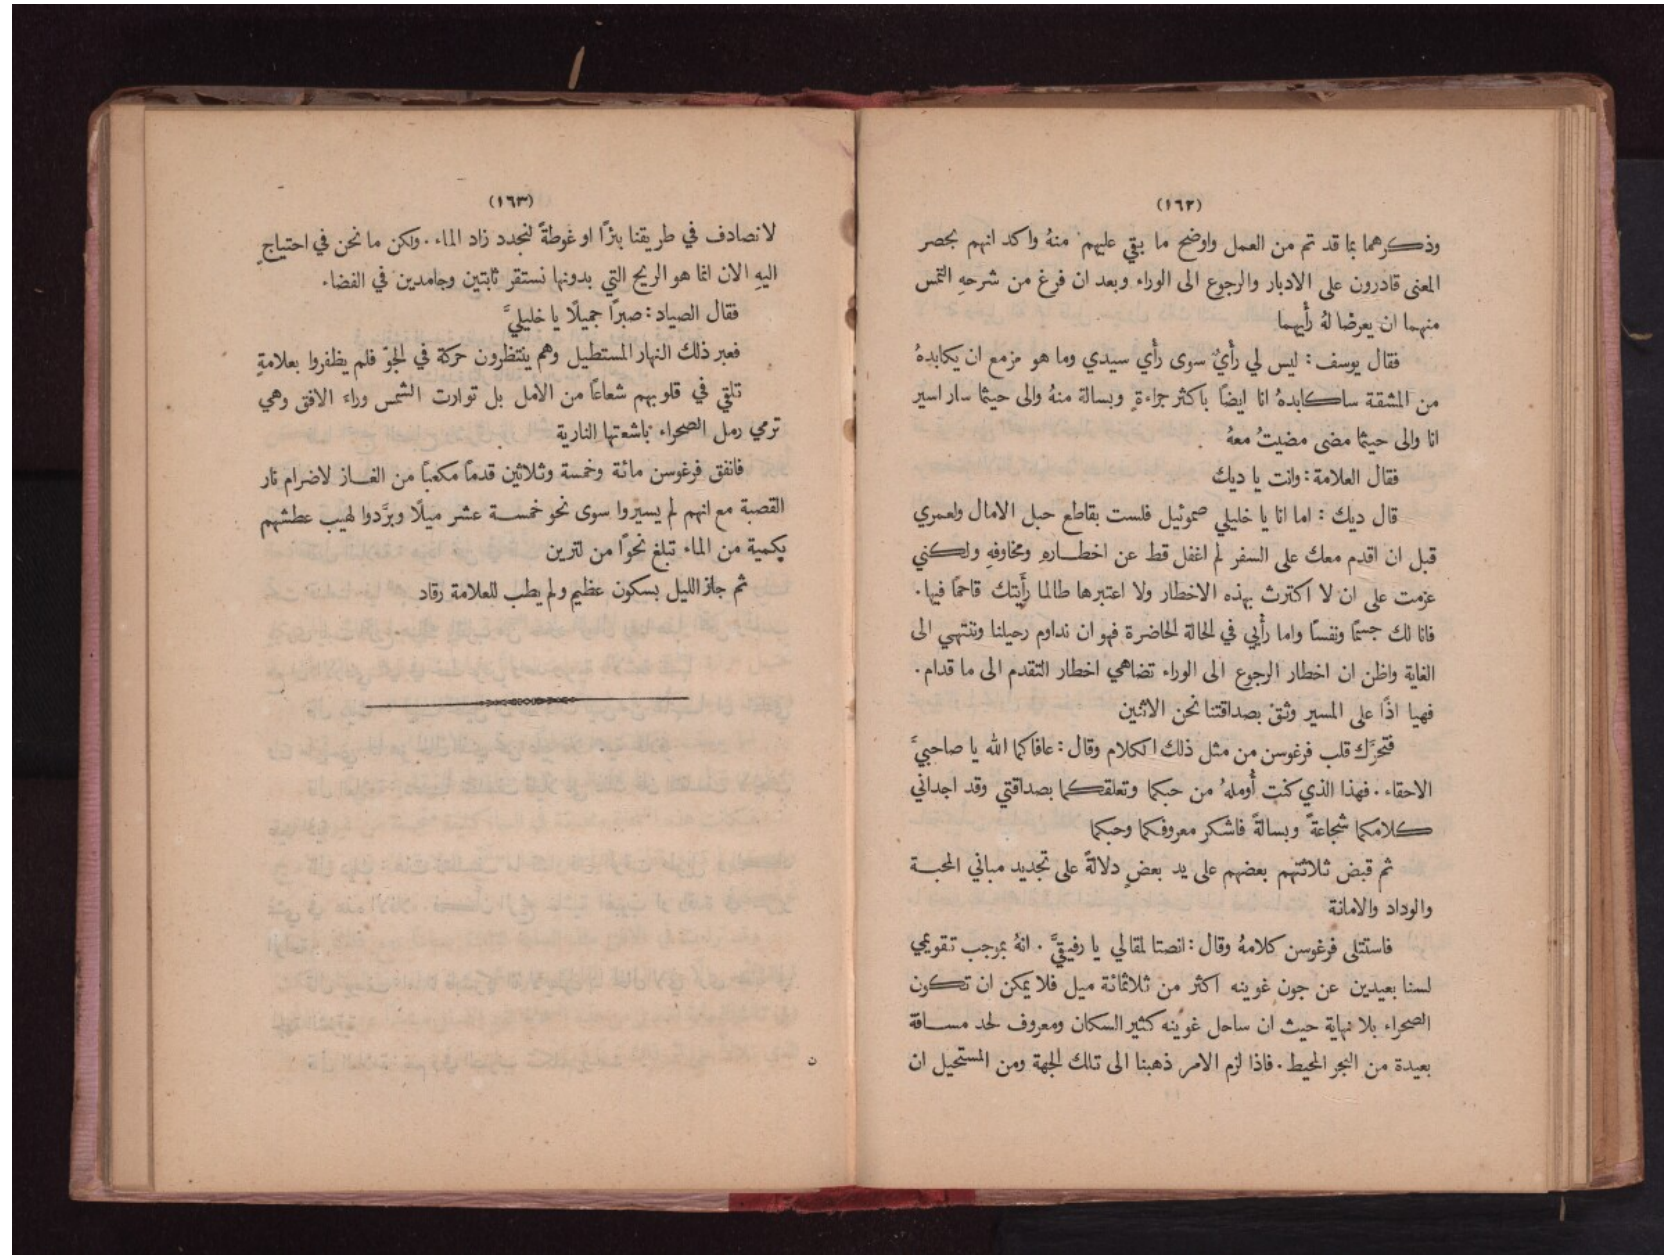 (١٦٢)
وذكرهما بما قد تم من العمل واوضح ما بقي عليهم منهُ واكد انهم بحصر
المعنى قادرون على الادبار والرجوع الى الوراء وبعد ان فرغ من شرحهِ التمس
منهما ان يعرضا لهُ رأيهما
فقال يوسف : ليس لي رأيٌ سوى رأي سيدي وما هو مزمع ان يكابدهُ
من المشقة ساكابدهُ انا ايضاً باكثر جراءةٍ وبسالة منهُ والى حيثما سار اسير
انا والى حيثما مضى مضيتُ معهُ
فقال العلامة : وانت يا ديك
قال ديك : اما انا يا خليلي صموئيل فلست بقاطع حبل الامال ولعمري
قبل ان اقدم معك على السفر لم اغفل قط عن اخطارهِ ومخاوفهِ ولكني
عزمت على ان لا اكترث بهذه الاخطار ولا اعتبرها طالما رأيتك قاحماً فيها .
فانا لك جسمًا ونفسًا واما رأيي في الحالة الحاضرة فهو ان نداوم رحيلنا وننتهي الى
الغاية واظن ان اخطار الرجوع الى الوراء تضاهي اخطار التقدم الى ما قدام .
فهيا اذًا على المسير وثق بصداقتنا نحن الاثنين
فتحرَّك قلب فرغوسن من مثل ذلك الكلام وقال : عافاكما الله يا صاحبيَّ
الاحقاء . فهذا الذي كنت أُوملهُ من حبكما وتعلقكما بصداقتي وقد اجداني
كلامكما شجاعةً وبسالةً فاشكر معروفكما وحبكما
ثم قبض ثلاثتهم بعضهم على يد بعضٍ دلالةً على تجديد مباني المحبة
والوداد والامانة
فاستتلى فرغوسن كلامهُ وقال : انصتا لمقالي يا رفيقيَّ . انهُ بموجب تقويمي
لسنا بعيدين عن جون غوينه اكثر من ثلاثمائة ميل فلا يمكن ان تكون
الصحراء بلا نهاية حيث ان ساحل غوينه كثير السكان ومعروف لحد مسافة
بعيدة من البحر المحيط . فاذا لزم الامر ذهبنا الى تلك الجهة ومن المستحيل ان
(١٦٣)
لا نصادف في طريقنا بئرًا او غوطةً لنجدد زاد الماء . ولكن ما نحن في احتياجٍ
اليهِ الان انما هو الريح التي بدونها نستقر ثابتين وجامدين في الفضاء .
فقال الصياد : صبرًا جميلًا يا خليليَّ
فعبر ذلك النهار المستطيل وهم ينتظرون حركة في الجوّ فلم يظفروا بعلامةٍ
تلقي في قلوبهم شعاعًا من الامل بل توارت الشمس وراء الافق وهي
ترمي رمل الصحراء باشعتها النارية
فانفق فرغوسن مائة وخمسة وثلاثين قدمًا مكعبًا من الغاز لاضرام نار
القصبة مع انهم لم يسيروا سوى نحو خمسة عشر ميلًا وبرَّدوا لهيب عطشهم
بكمية من الماء تبلغ نحوًا من لترين
ثم جاز الليل بسكون عظيم ولم يطب للعلامة رقاد